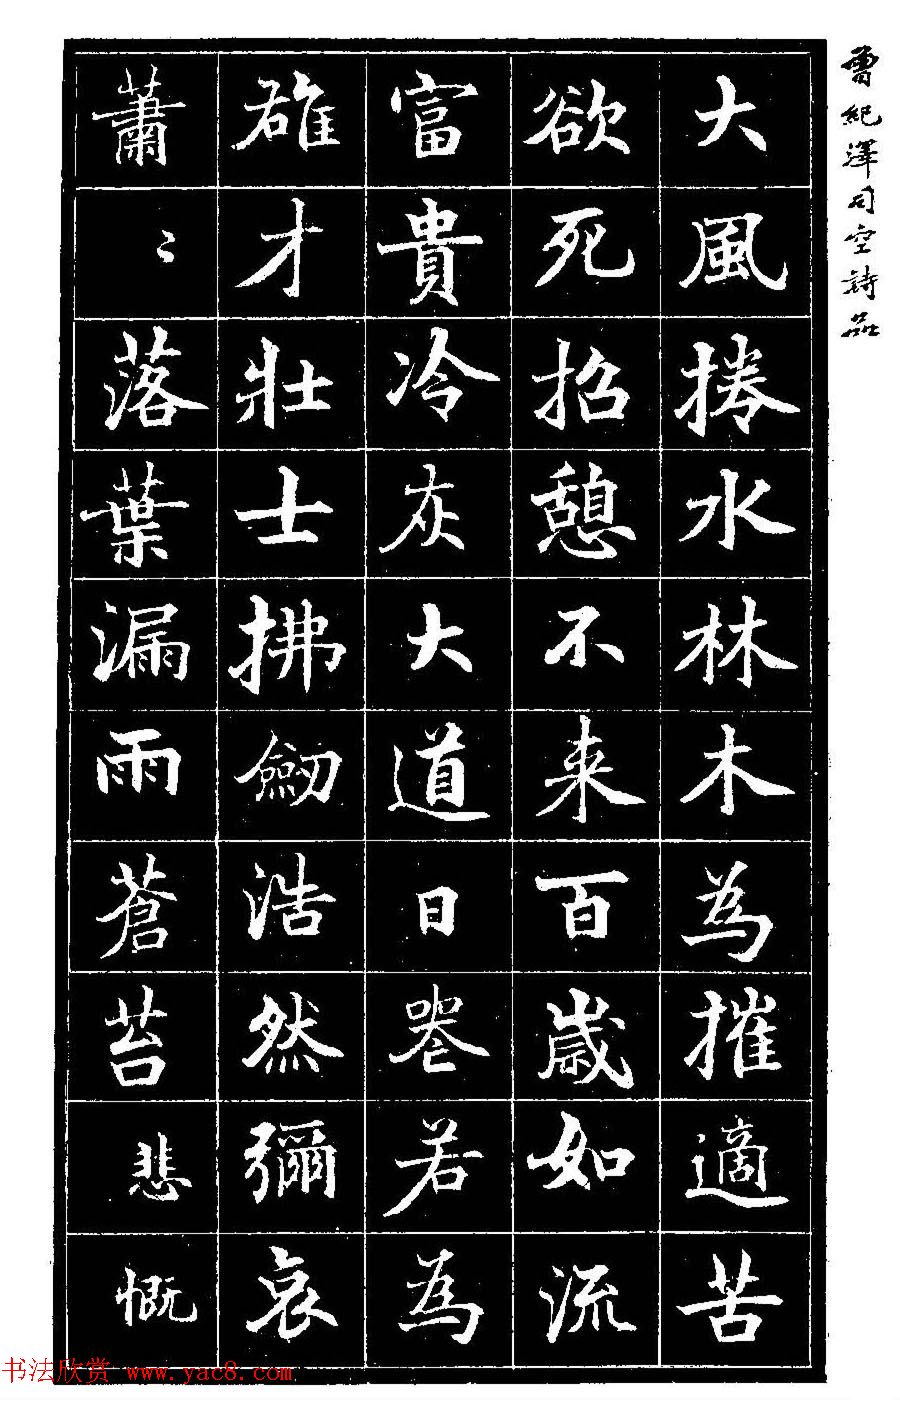 曾紀澤司空詩品
大風捲水林木為摧適苦
欲死招憩不來百歲如流
富貴冷灰大道日喪若為
雄才壯士拂劒浩然彌哀
蕭〻落葉漏雨蒼苔悲慨
书法欣赏 www.yac8.com